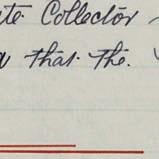 te Collector
that the.